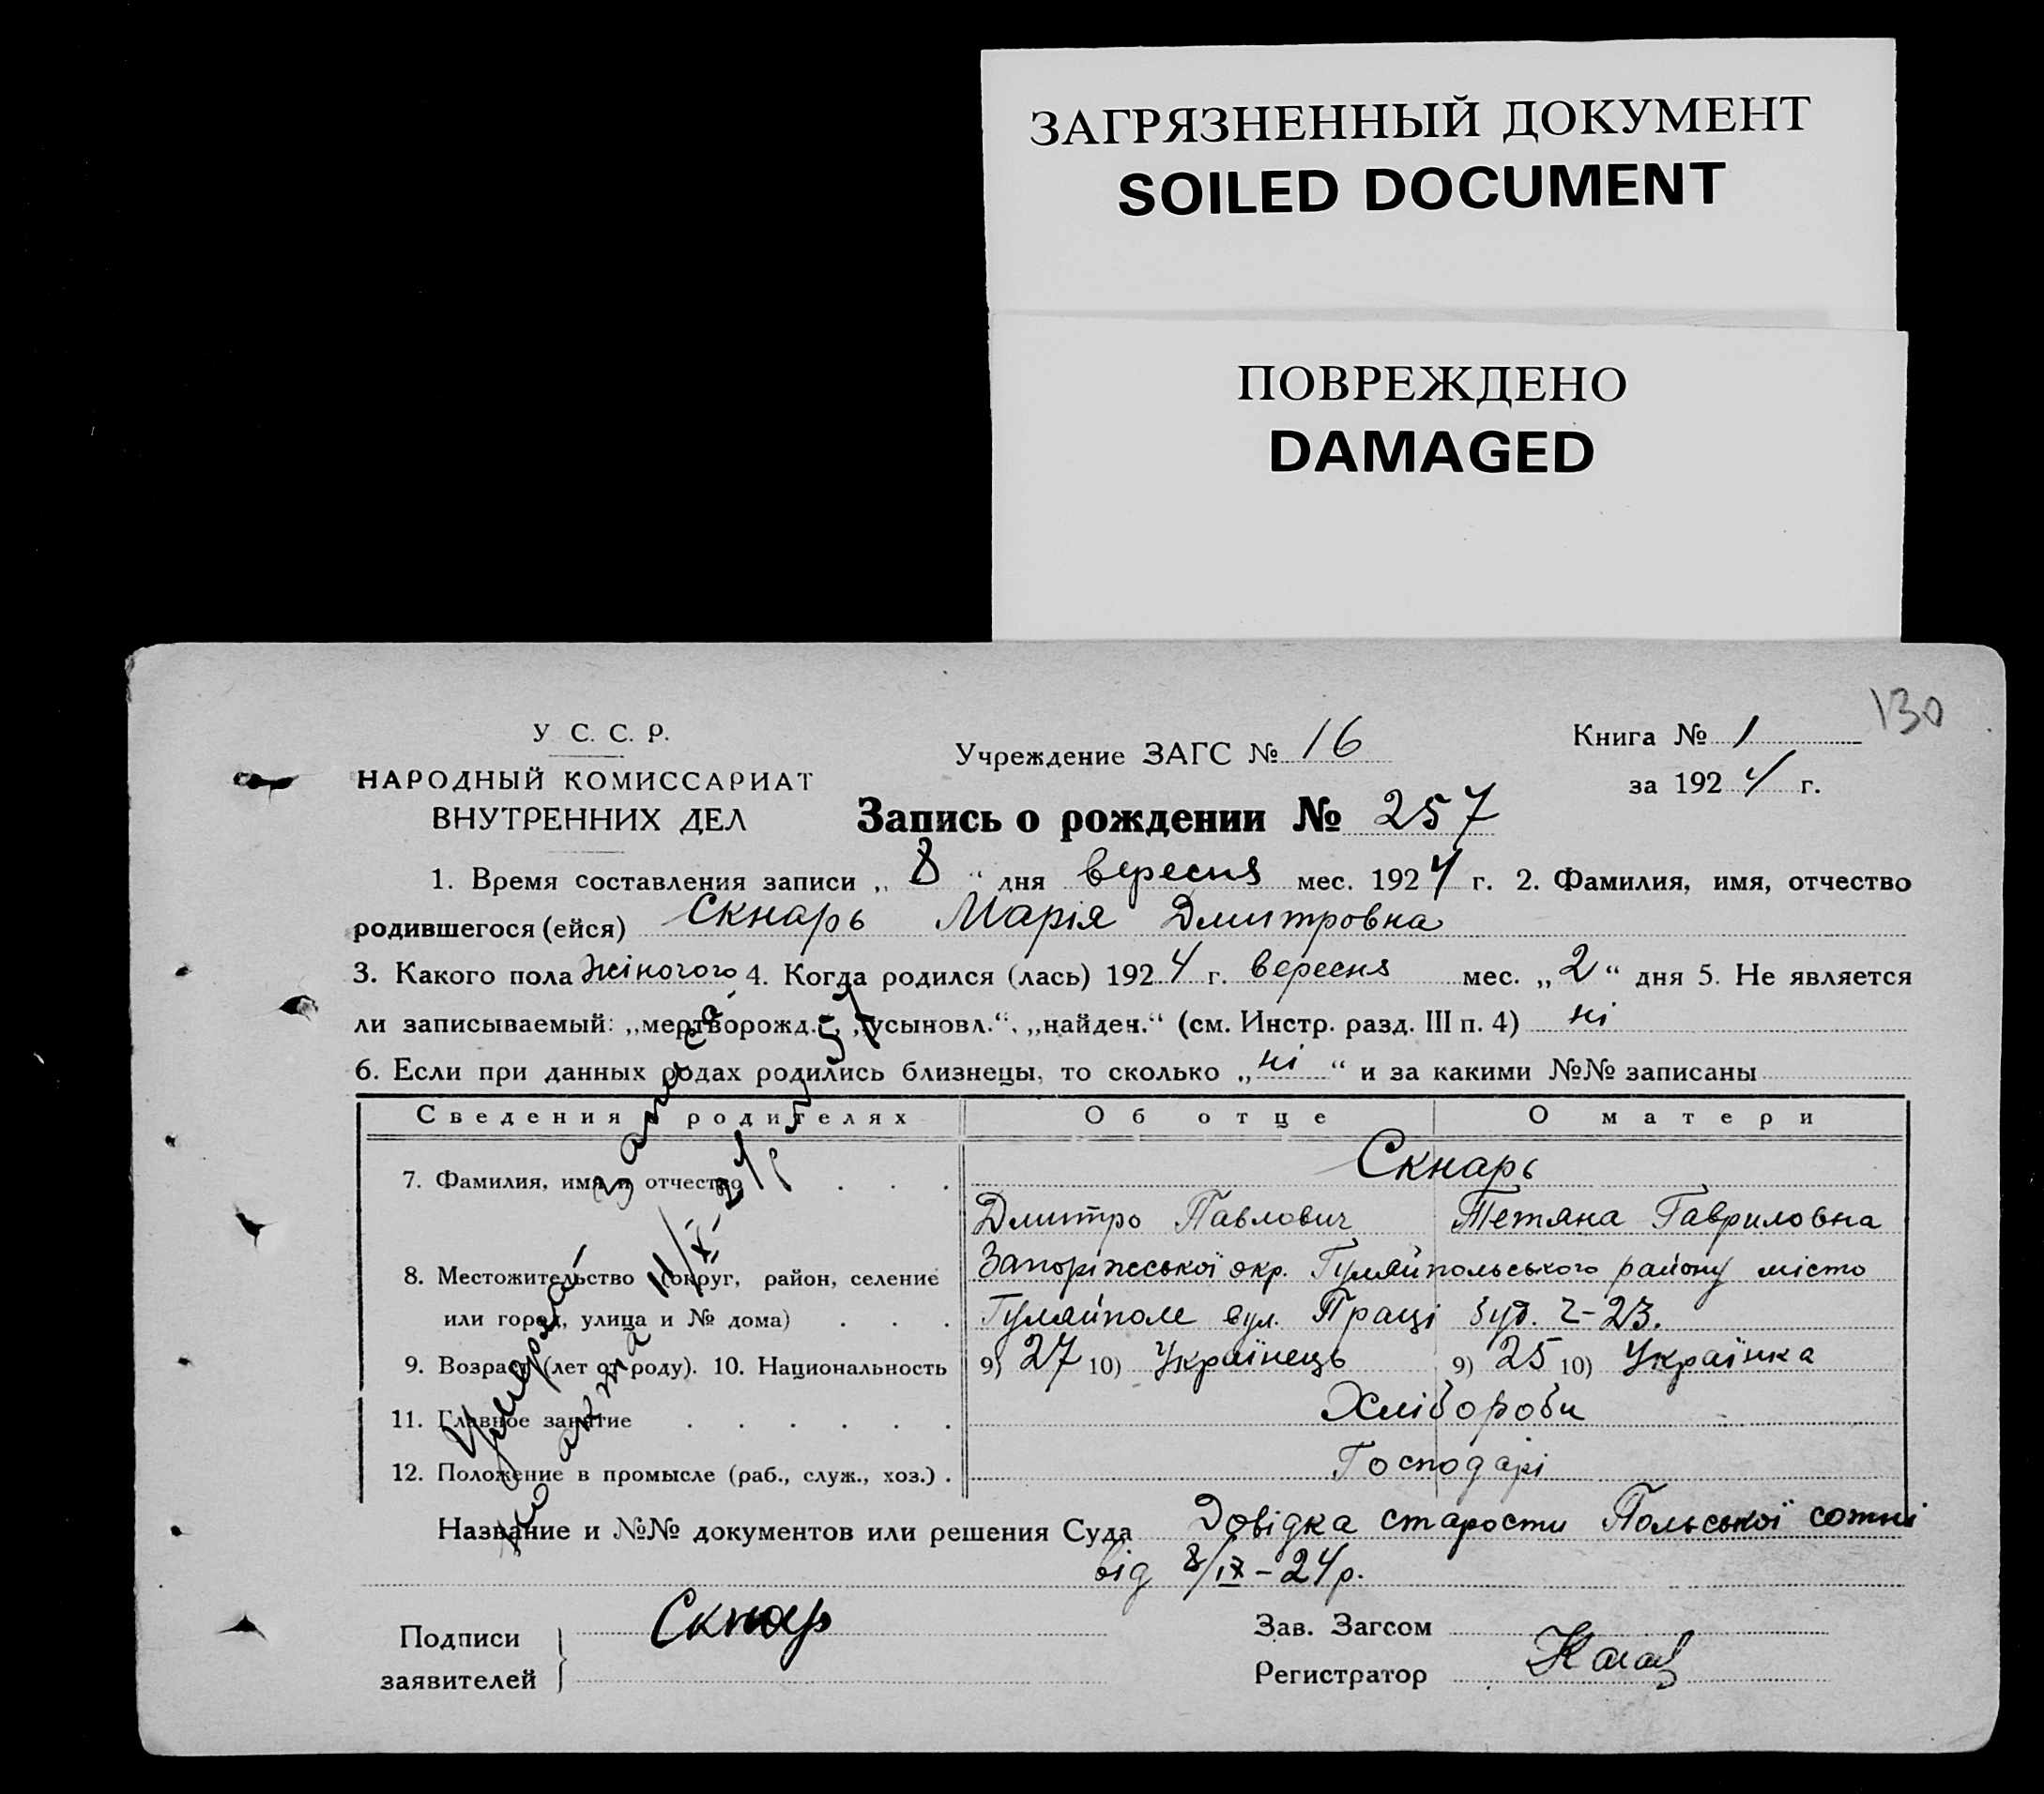 ЗАГРЯЗНЕННЫЙ ДОКУМЕНТ
SOILED DOCUMENT
ПОВРЕЖДЕНО
DAMAGED
130
У С. С. Р.
НАРОДНЫЙ КОМИССАРИАТ
ВНУТРЕННИХ ДЕЛ
Учреждение ЗАГС № 16
Книга № 1
за 1924 г.
Запись о рождении № 257
1. Время составления записи „ 8 “ дня вересня мес. 1924 г. 2. Фамилия, имя, отчество
родившегося (ейся) Скнарь Марія Дмитровна
3. Какого пола жіночого 4. Когда родился (лась) 1924 г. вересня мес. „ 2 “ дня 5. Не является
ли записываемый: „мертворожд.“, „усыновл.“, „найден.“ (см. Инстр. разд. III п. 4) ні
6. Если при данных родах родились близнецы, то сколько „ ні “ и за какими №№ записаны
Сведения о родителях Об отце О матери
7. Фамилия, имя и отчество . . . Скнарь
Дмитро Павлович Тетяна Гавриловна
8. Местожительство (округ, район, селение Запоріжської окр. Гуляйпольського району місто
или город, улица и № дома) . . . Гуляйполе вул. Праці буд. ч-23.
9. Возраст (лет от роду). 10. Национальность 9) 27 10) Українець 9) 25 10) Українка
11. Главное занятие . . . . . . Хлібороби
12. Положение в промысле (раб., служ., хоз.) . Господарі
Название и №№ документов или решения Суда Довідка старости Польської сотні
від 8/IX-24р.
Подписи
заявителей
Скнарь
Зав. Загсом
Регистратор
Умерла
запись
акта
11/X-24р.